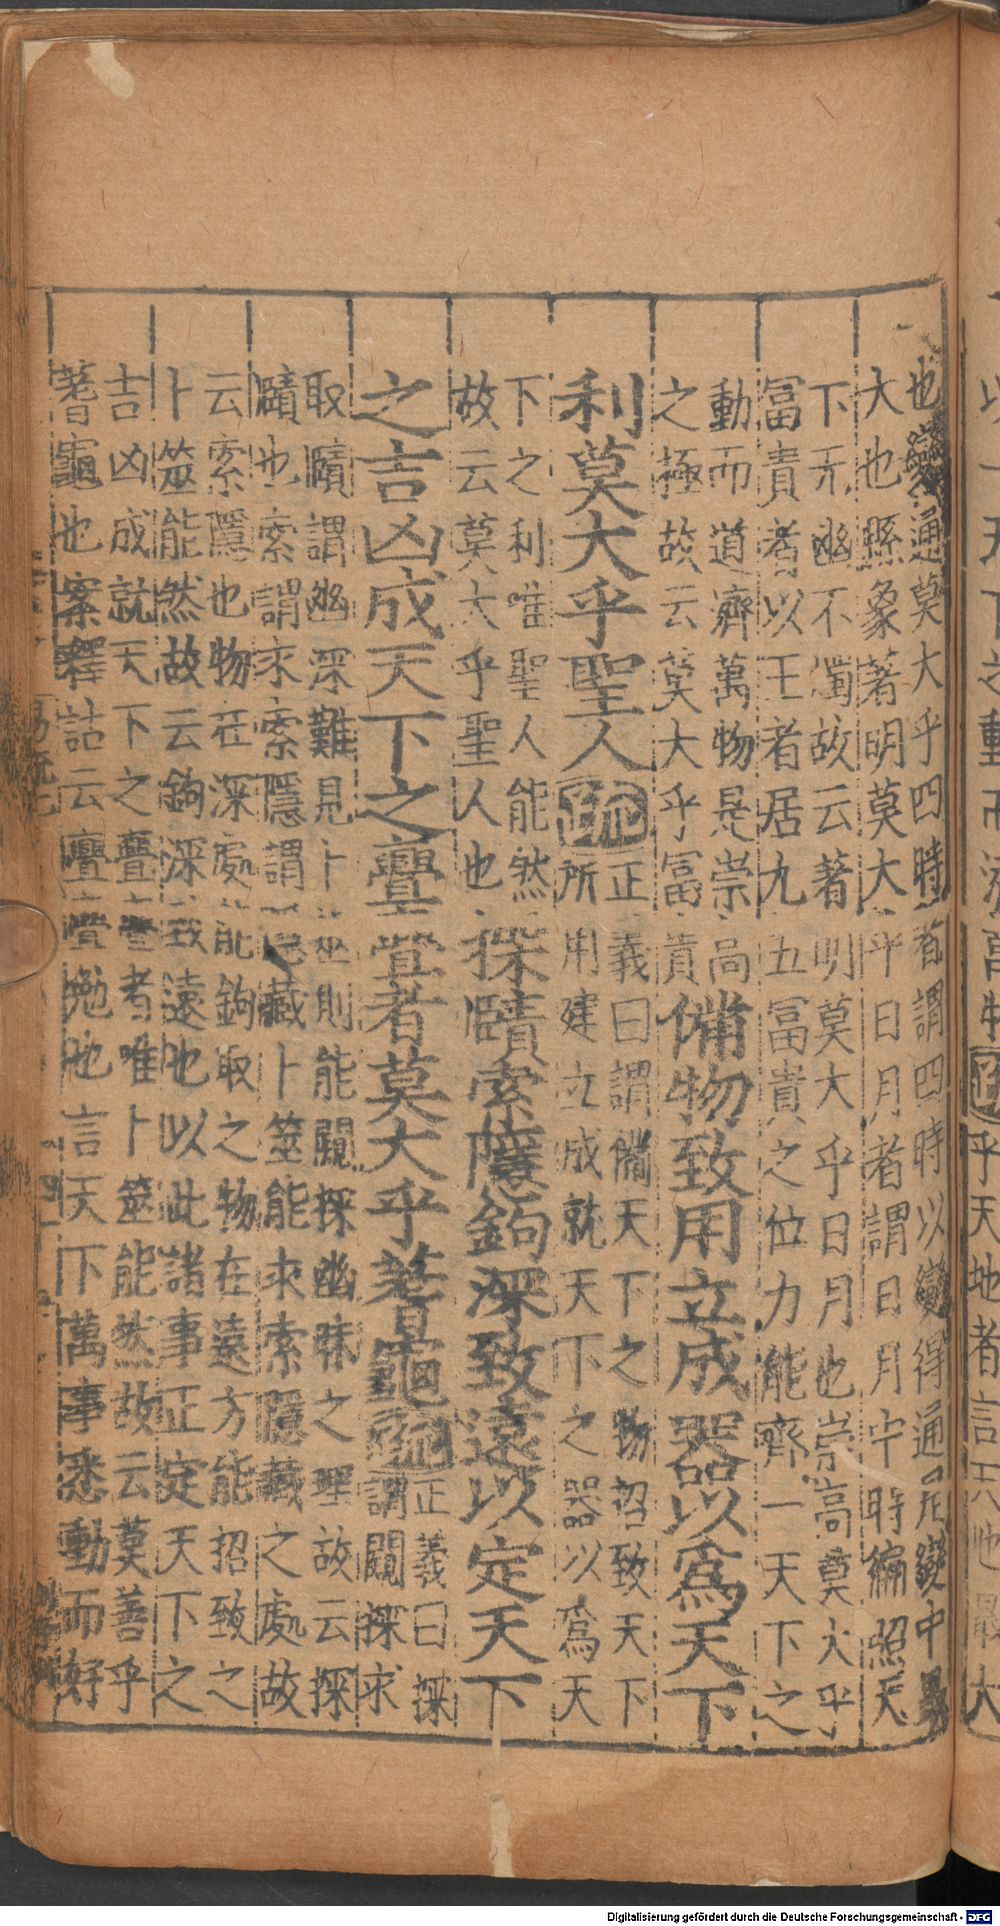 也變通莫大乎四時者謂四時以變得通是變中最
大也縣象著明莫大乎日月者謂日月中時徧照天
下无幽不燭故云著明莫大乎日月也崇高莫大乎
冨貴者以王者居九五冨貴之位力能齊一天下之
動而道齊萬物是崇高
之極故云莫大乎冨貴
備物致用立成器以爲天下
利莫大乎聖人疏
正義曰謂備天下之物招致天下
所用建立成就天下之器以爲天
下之利唯聖人能然
故云莫大乎聖人也
探賾索隱鉤深致遠以定天下
之吉凶成天下之亹亹者莫大乎蓍龜疏
正義曰探
謂闚探求
取賾謂幽深難見卜筮則能闚探幽昧之理故云探
賾也索謂求索隱謂隱藏卜筮能求索隱藏之處故
云索隱也物在深處能鉤取之物在遠方能招致之
卜筮能然故云鉤深致遠也以此諸事正定天下之
吉凶成就天下之亹亹者唯卜筮能然故云莫善乎
蓍龜也案釋詁云亹亹勉也言天下萬事悉動而好
乎天地者言天地最大
Digitalisierung gefördert durch die Deutsche Forschungsgemeinschaft - DFG